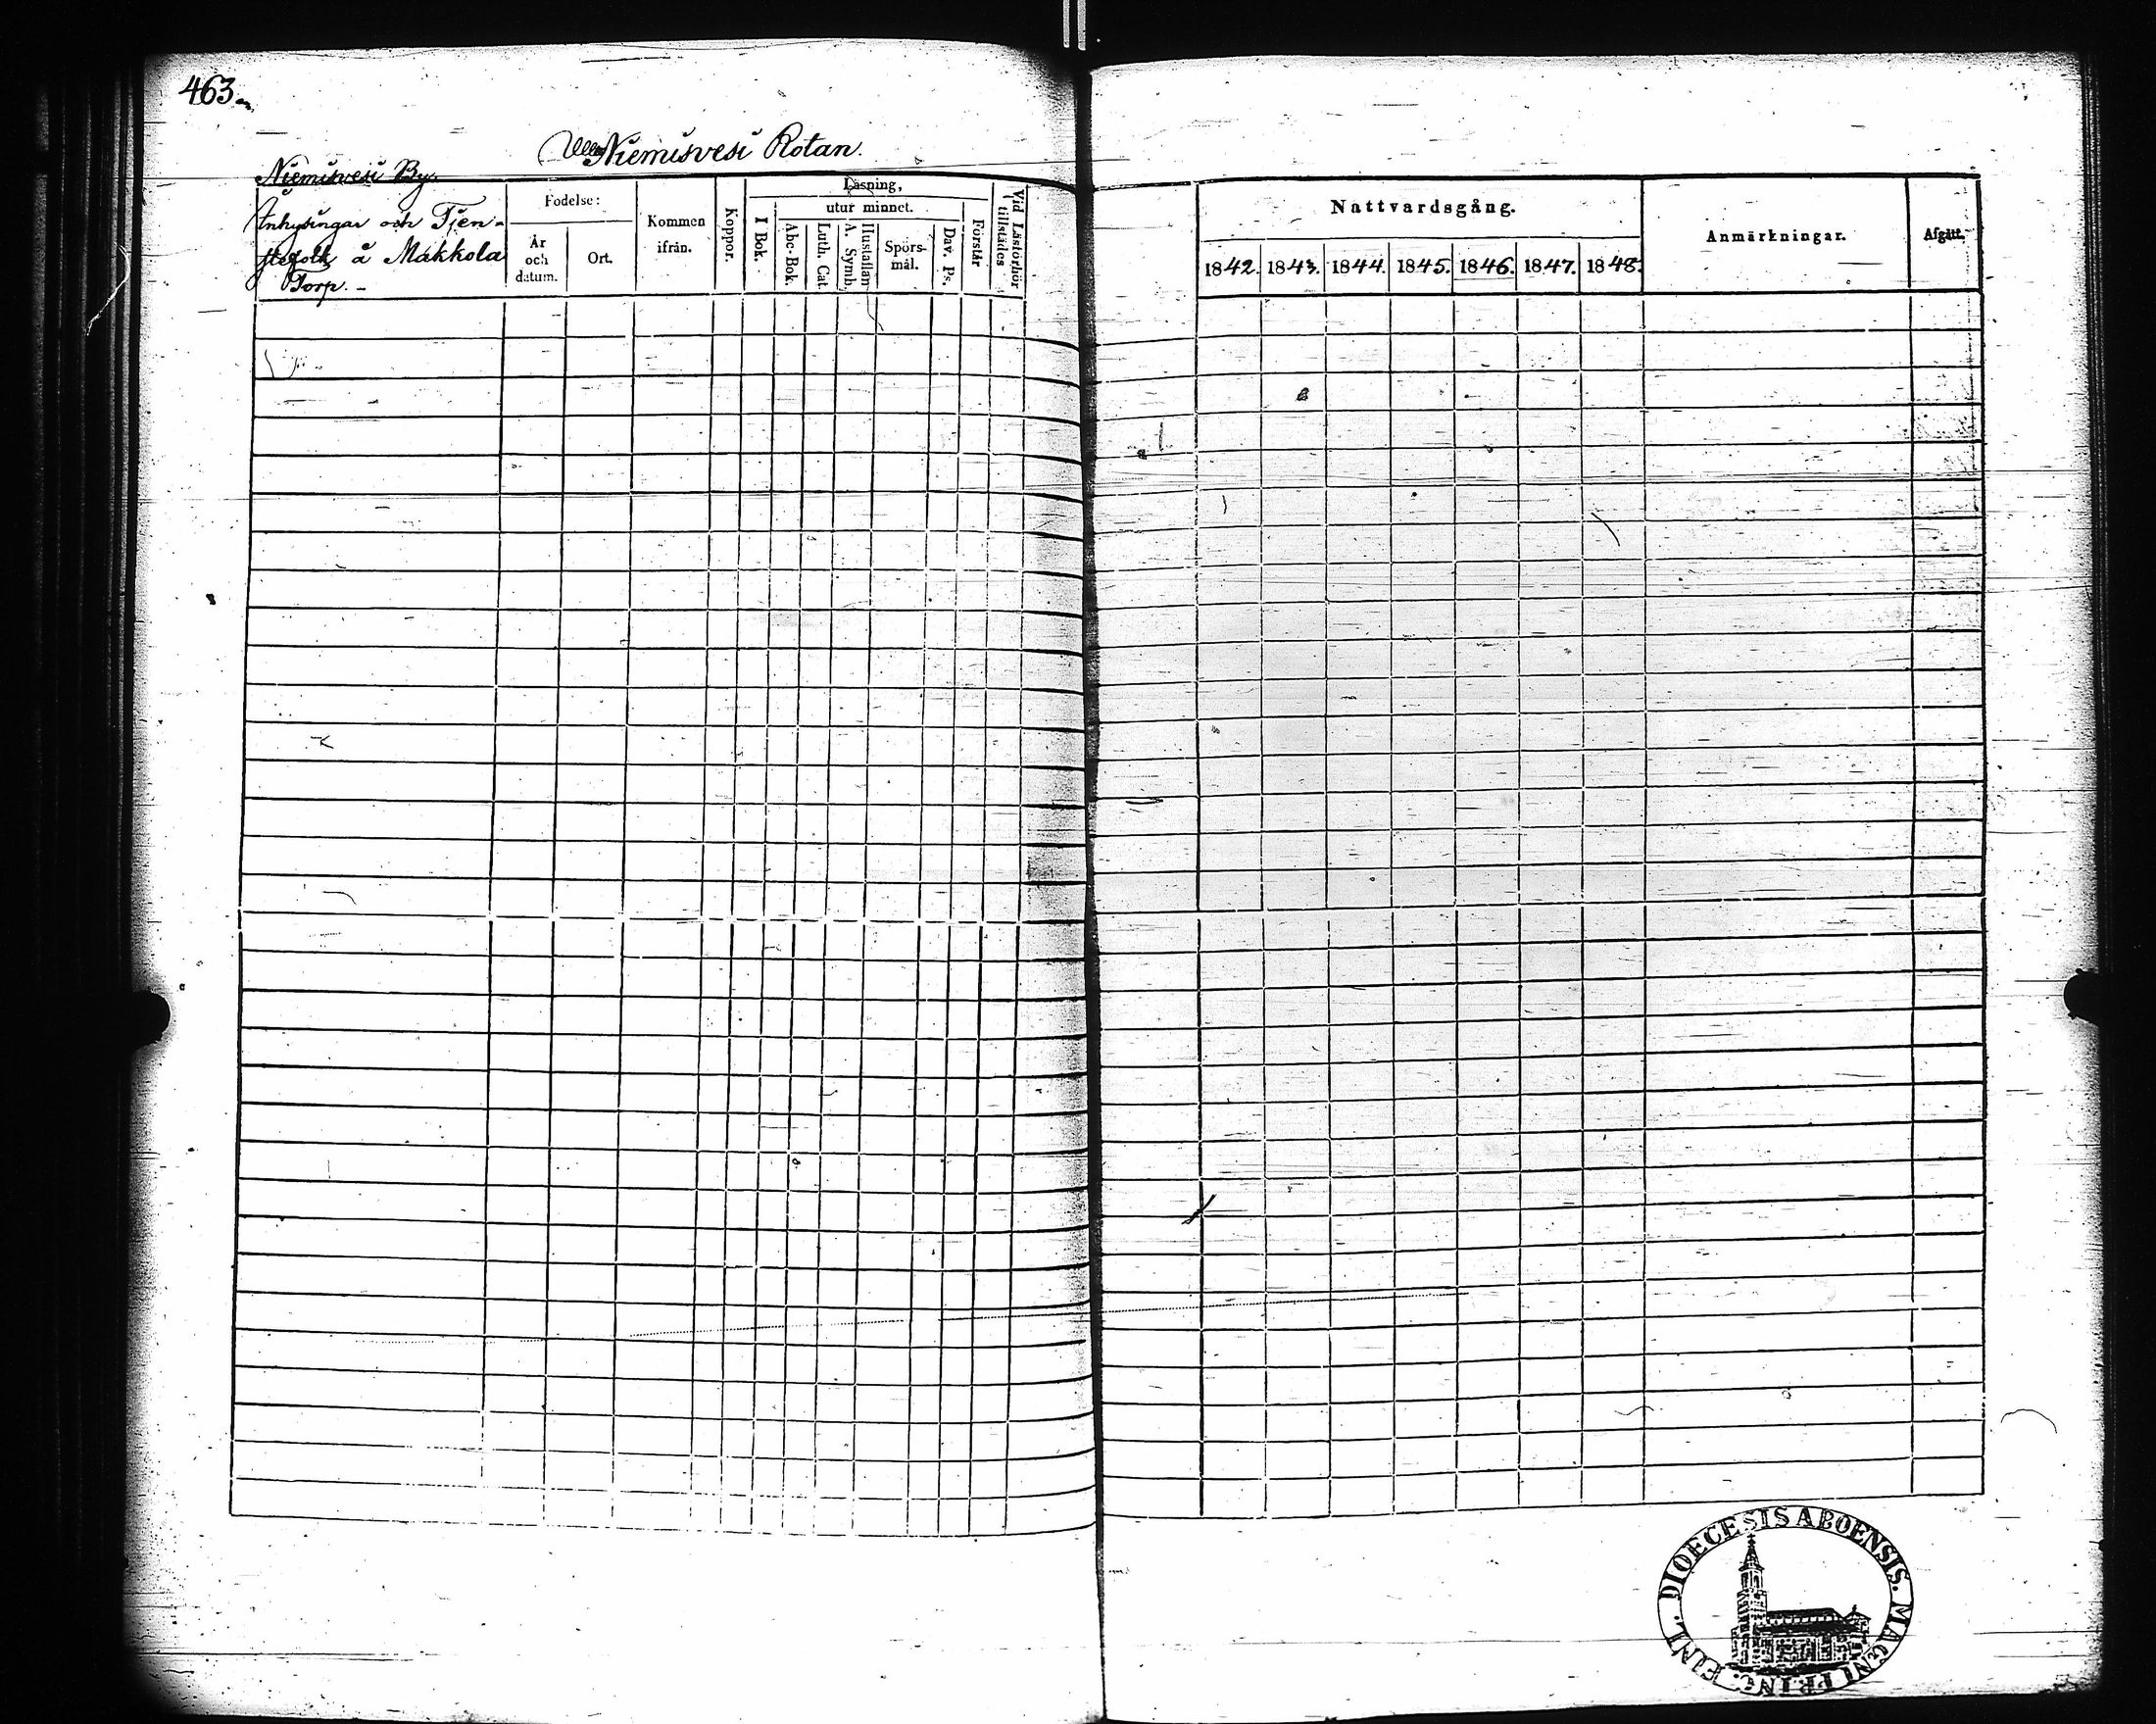 463.
Niemisvesi Rotan.
Niemisvesi By.
Inhysingar och Tjen-
stefolk å Makkola
Torp. -
Fodelse:
År
och
datum.
Ort.
Kommen
ifrån.
Koppor.
Läsning,
utur minnet.
I Bok.
Abc-Bok.
Luth. Cat
A. Symb.
Hustaflan
Spörs-
mål.
Dav. Ps.
Förstår
Vid Läsförhör
tillstädes
Nattvardsgång.
1842. 1843. 1844. 1845. 1846. 1847. 1848.
Anmärkningar.
Afgått.
DIOECESIS ABOENSIS. MAGNI PRINC. FINL.